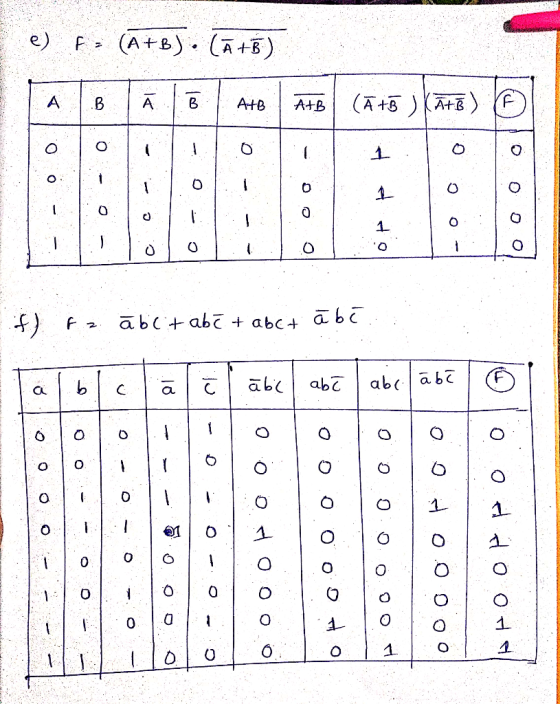 e) F = (A̅+̅B̅)̅ . (A̅+B̅)̅
A B A̅ B̅ A+B A̅+̅B̅ (A̅+B̅) (A̅+B̅)̅ F
0 0 1 1 0 1 1 0 0
0 1 1 0 1 0 1 0 0
1 0 0 1 1 0 1 0 0
1 1 0 0 1 0 0 1 0
f) F = a̅bc + abc̅ + abc + a̅bc̅
a b c a̅ c̅ a̅bc abc̅ abc a̅bc̅ F
0 0 0 1 1 0 0 0 0 0
0 0 1 1 0 0 0 0 0 0
0 1 0 1 1 0 0 0 1 1
0 1 1 1 0 1 0 0 0 1
1 0 0 0 1 0 0 0 0 0
1 0 1 0 0 0 0 0 0 0
1 1 0 0 1 0 1 0 0 1
1 1 1 0 0 0 0 1 0 1